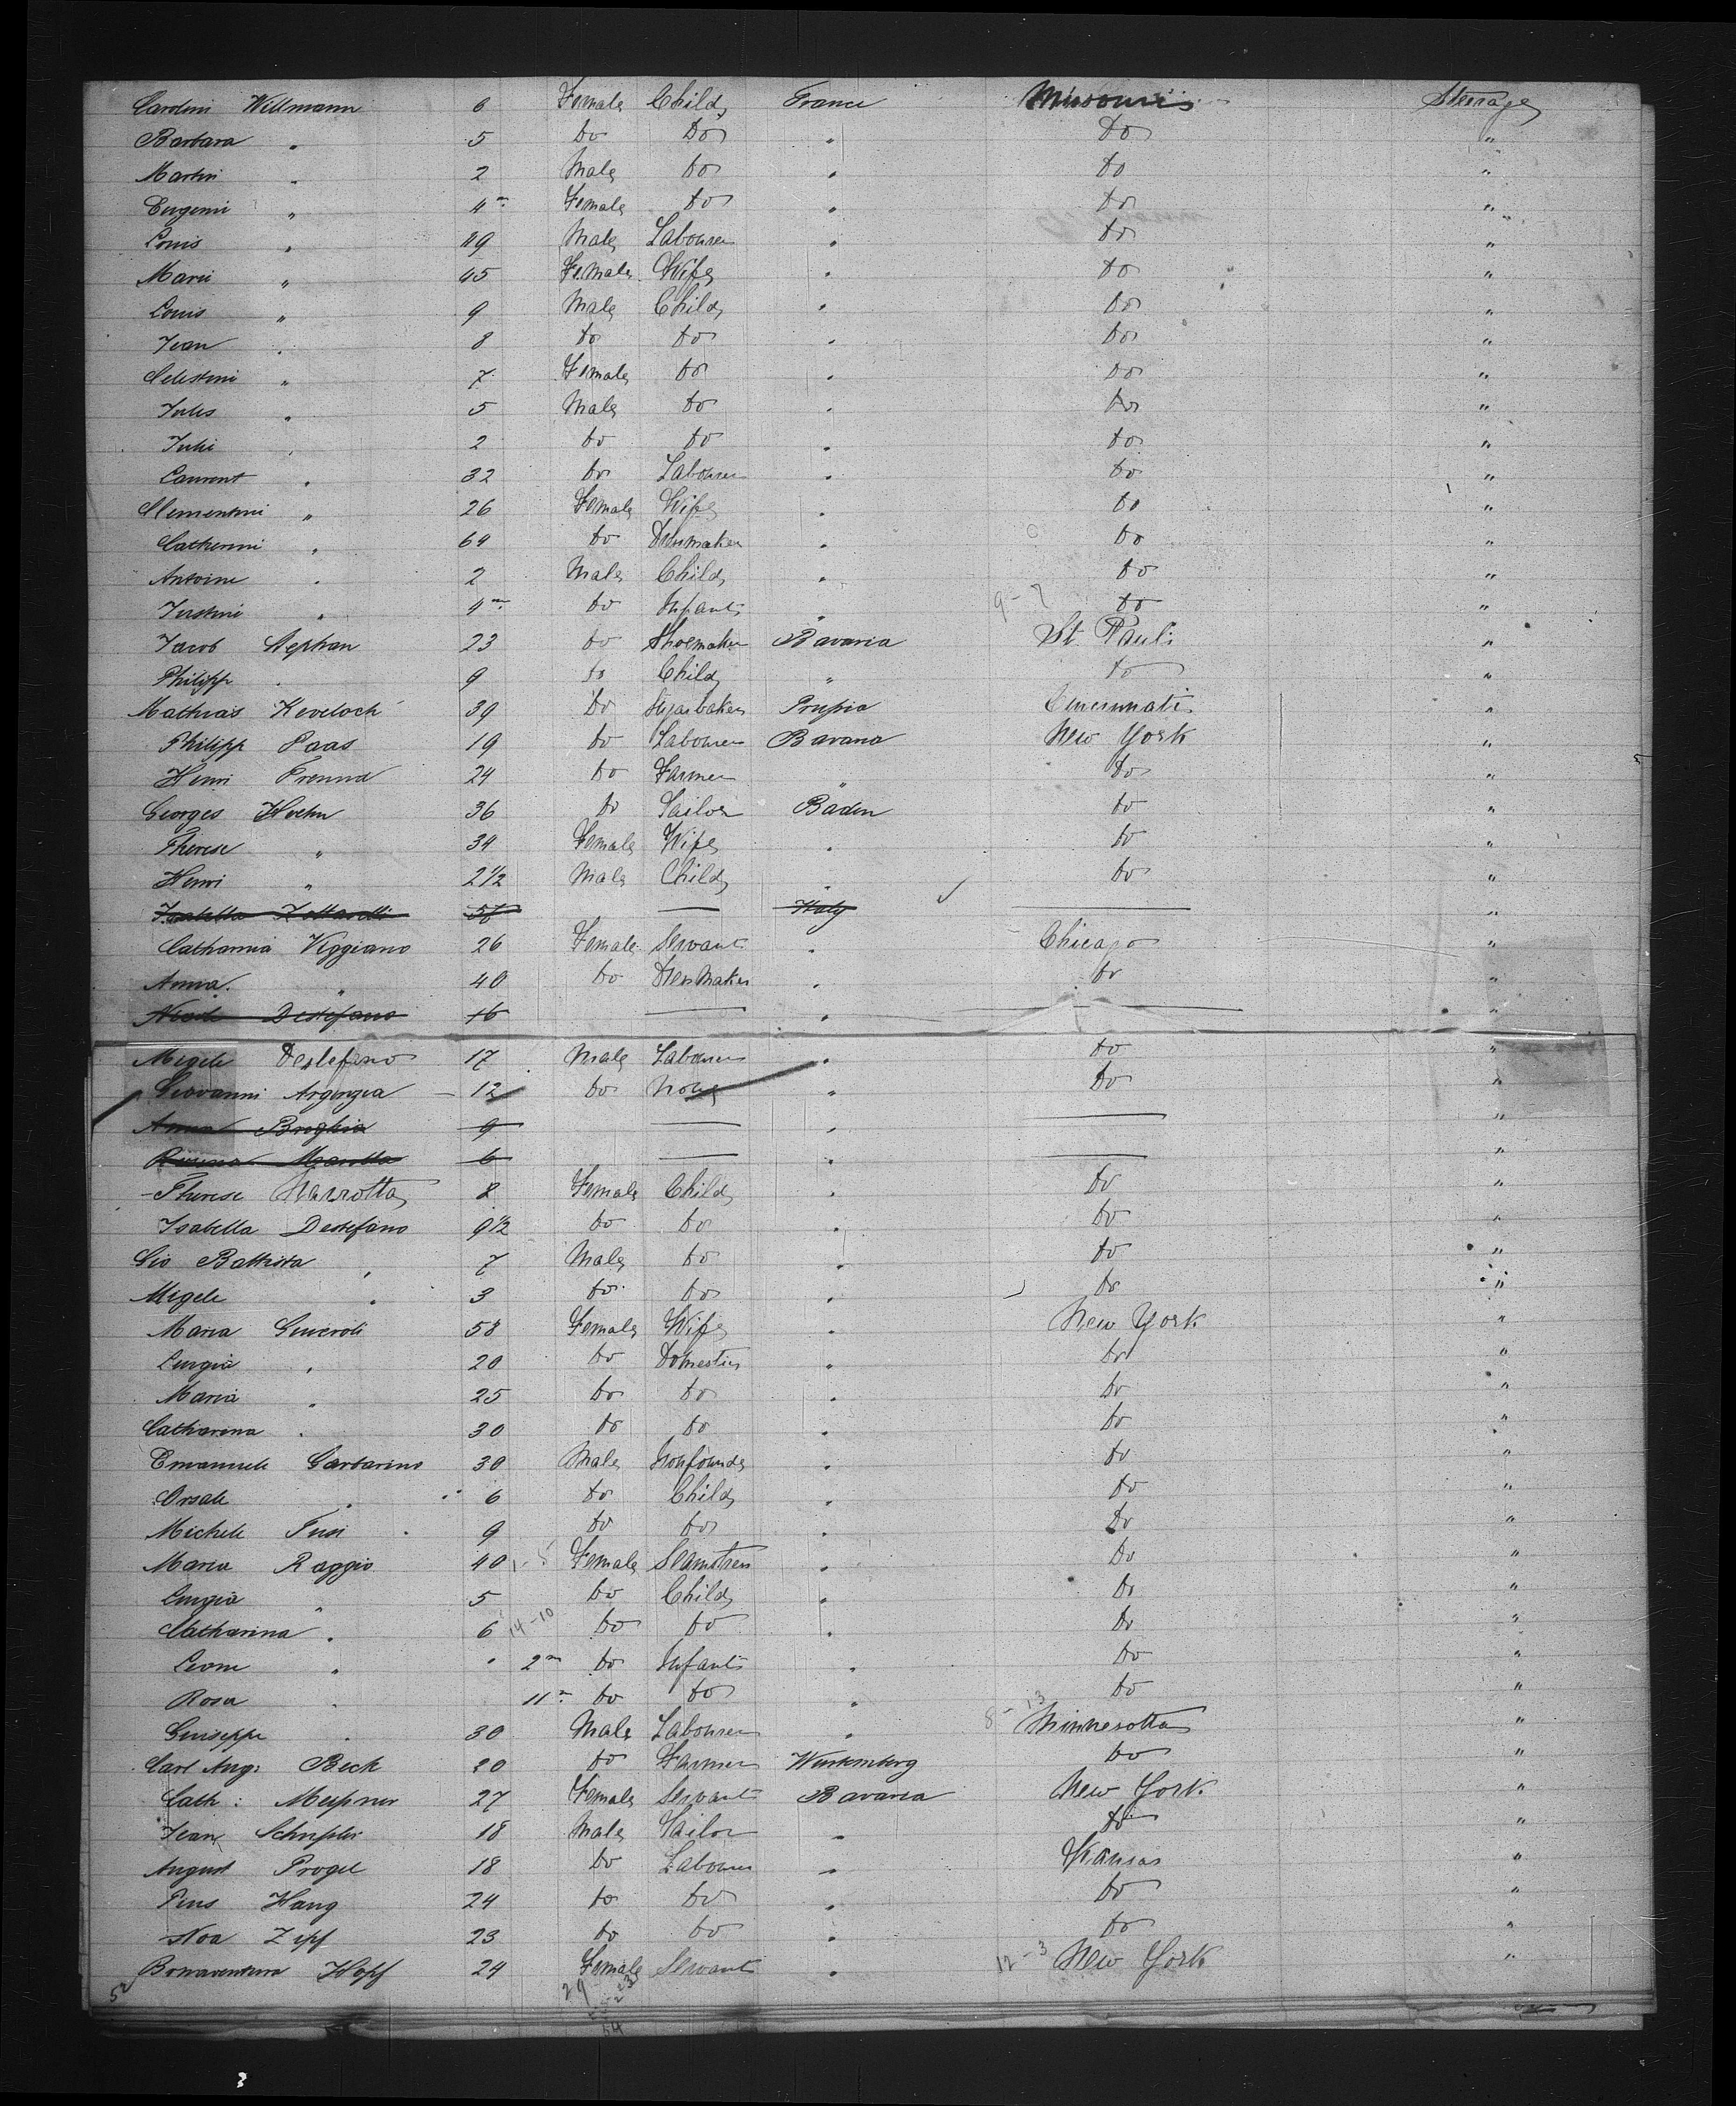 Carolini Willmann 6 Female Child France Missouri Steerage
Barbara " 5 Do Do " Do "
Martin " 2 Male Do " Do "
Eugenie " 4m Female Do " Do "
Louis " 49 Male Labourer " Do "
Marie " 45 Female Wife " Do "
Louis " 9 Male Child " Do "
Jean " 8 Do Do " Do "
Celestini " 7 Female Do " Do "
Jules " 5 Male Do " Do "
Julie " 2 Do Do " Do "
Laurent " 32 Do Labourer " Do "
Clementini " 26 Female Wife " Do "
Catherini " 64 Do Dressmaker " Do "
Antoine " 2 Male Child " Do "
Justini " 4m Do Infant " 9-7 Do "
Jacob Stephan 23 Do Shoemaker Bavaria St. Paul "
Philipp " 9 Do Child " Do "
Mathias Keveloch 39 Do Sugarbaker Prussia Cincinnati "
Philipp Paas 19 Do Labourer Bavaria New York "
Henri Freund 24 Do Farmer " Do "
Georges Hoehn 36 Do Tailor Baden Do "
Therese " 34 Female Wife " Do "
Henri " 2 1/2 Male Child " Do "
Isabella 56 Italy "
Catharina Viggiano 26 Female Servant " Chicago "
Anna " 40 Do Dressmaker " Do "
Destefano 16 " "
Migele Destefano 17 Male Labourer " Do "
Giovanni Argenzia 12 Do None " Do "
Anna Broglia 9 " "
Rosina Marotta 6 " "
Therese Marrotta 8 Female Child " Do "
Isabella Destefano 9 1/2 Do Do " Do "
Gio Battista " 7 Male Do " Do "
Migele " 3 Do Do " Do "
Maria 58 Female Wife " New York "
Luigia " 20 Do Domestic " Do "
Maria " 25 Do Do " Do "
Catharina " 30 Do Do " Do "
Emanuele Garbarino 30 Male Ironfounder " Do "
Orsale " 6 Do Child " Do "
Michele 9 Do Do " Do "
Maria Raggio 40 Female Seamstress " Do "
Luigia " 5 Do Child " Do "
Catharina " 6 14-10 Do Do " Do "
Leone " " 2m Do Infant " Do "
Rosa " 11m Do Do " Do "
Guiseppe " 30 Male Labourer " 8-13 Minnesotta "
Carl Aug: Beck 20 Do Farmer Wurtemberg Do "
Cath: Messner 27 Female Servant Bavaria New York "
Jean 18 Male Tailor " Do "
August Progel 18 Do Labourer " Kansas "
Pius Haug 24 Do Do " Do "
Noa Zipf 23 Do Do " Do "
Bonaventura Hopf 24 Female Servant " 12-3 New York "
52 29 23
54